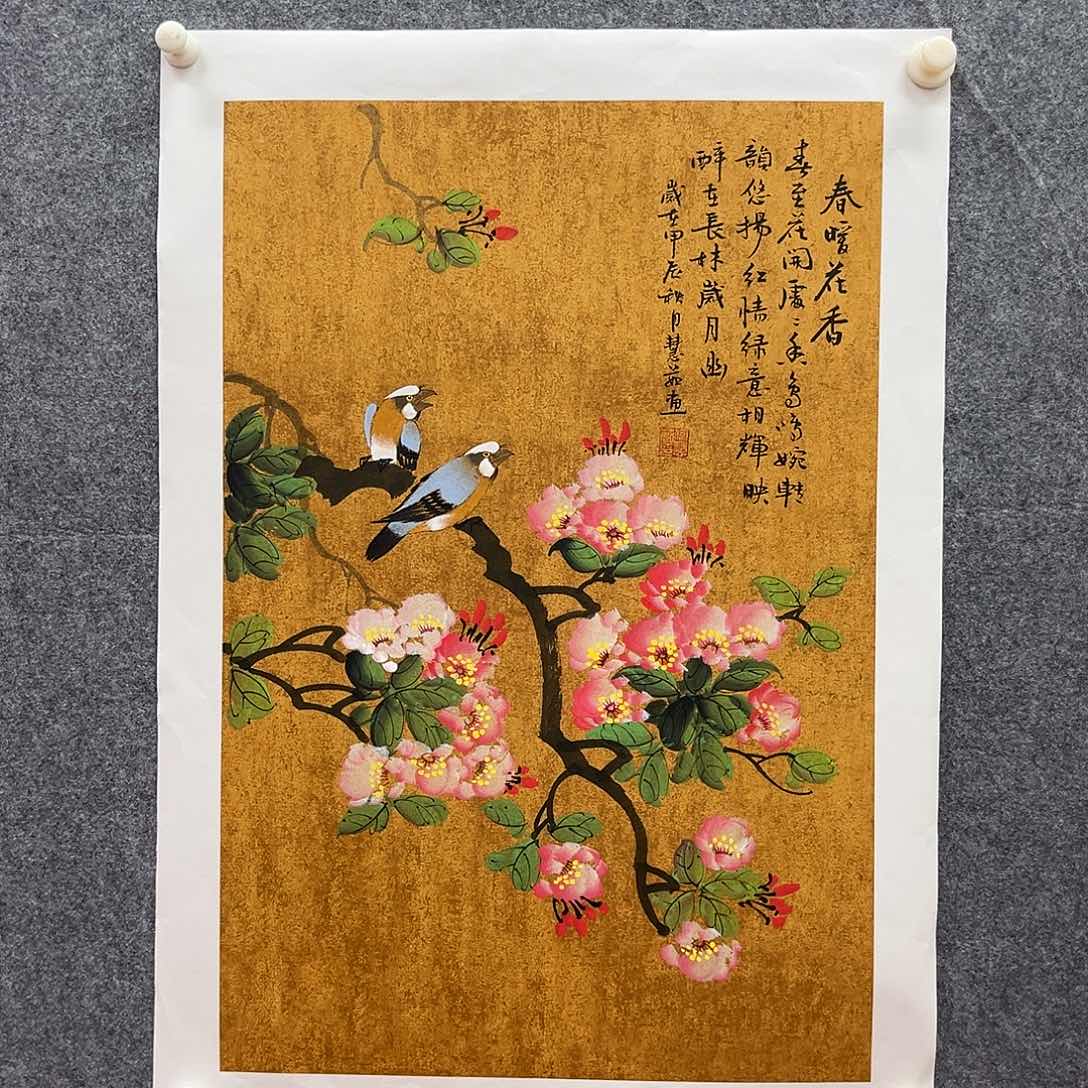 春暖花香
春至花開處處香鳥啼婉轉
韻悠揚紅情綠意相輝映
醉在長林歲月幽
歲在甲辰秋月慧茹畫